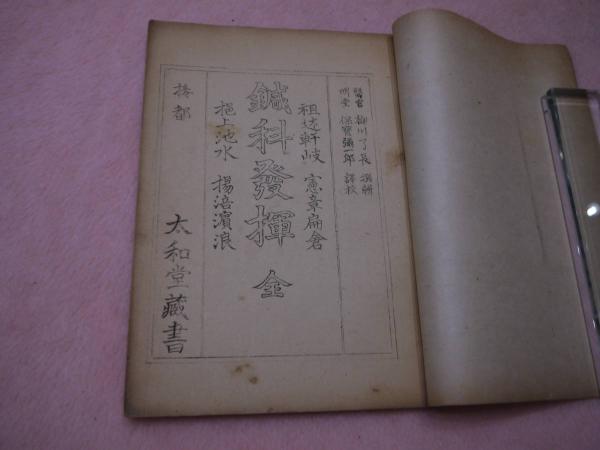 醫官 柳川了長 撰緝
明堂 保寶彌一郎 譯校
祖述軒岐 憲章扁倉
鍼科發揮 全
挹上池水 揚涪濱浪
搸都
太和堂藏書